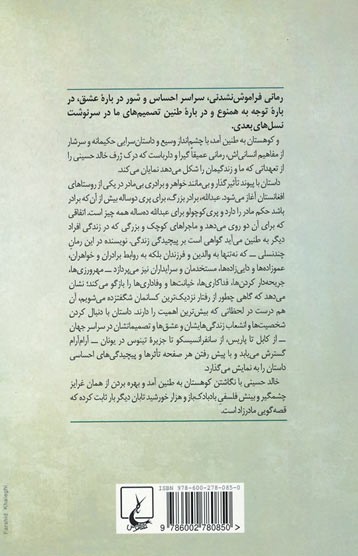 رمانی فراموش‌نشدنی، سراسر احساس و شور در بارهٔ عشق، در
بارهٔ توجه به همنوع و در بارهٔ طنین تصمیم‌های ما در سرنوشت
نسل‌های بعدی.
و کوهستان به طنین آمد، با چشم‌انداز وسیع و داستان‌سرایی حکیمانه و سرشار
از مفاهیم انسانی‌اش، رمانی عمیقاً گیرا و دارباست که درک ژرف خالد حسینی را
از تعهداتی که ما و زندگیمان را شکل می‌دهد نمایان می‌کند.
داستان با پیوند تأثیرگذار و بی‌مانند خواهر و برادری بی‌مادر در یکی از روستاهای
افغانستان آغاز می‌شود. عبدالله، برادر بزرگ، برای پری دوساله بیش از آن که برادر
باشد حکم مادر را دارد و پری کوچولو برای عبدالله ده‌ساله همه چیز است. اتفاقی
که برای آن دو روی می‌دهد و ماجراهای کوچک و بزرگی که در زندگی افراد
دیگر به طنین می‌آید گواهی است بر پیچیدگی زندگی. نویسنده در این رمانِ
چندنسلی — که نه‌تنها به والدین و فرزندان بلکه به روابط برادران و خواهران،
عموزاده‌ها و دایی‌زاده‌ها، مستخدمان و سرایداران نیز می‌پردازد — مهرورزی‌ها،
جریحه‌دار کردن‌ها، فداکاری‌ها، خیانت‌ها و وفاداری‌ها را بازگو می‌کند؛ نشان
می‌دهد که گاهی چطور از رفتار نزدیک‌ترین کسانمان شگفتزده می‌شویم، آن
هم درست در لحظاتی که بیش‌ترین اهمیت را دارند. داستان با دنبال کردن
شخصیت‌ها و انشعاب زندگی‌هایشان و عشق‌ها و تصمیماتشان در سراسر جهان
— از کابل تا پاریس، از سانفرانسیسکو تا جزیرهٔ تینوس در یونان — آرام‌آرام
گسترش می‌یابد و با پیش رفتن هر صفحه تأثرها و پیچیدگی‌های احساسی
داستان را به نمایش می‌گذارد.
خالد حسینی با نگاشتن کوهستان به طنین آمد و بهره بردن از همان غرایز
چشمگیر و بینش فلسفیِ بادبادک‌باز و هزار خورشید تابان دیگر بار ثابت کرده که
قصه‌گویی مادرزاد است.
ISBN 978-600-278-085-0
9 786002 780850
Farshid Khaleghi